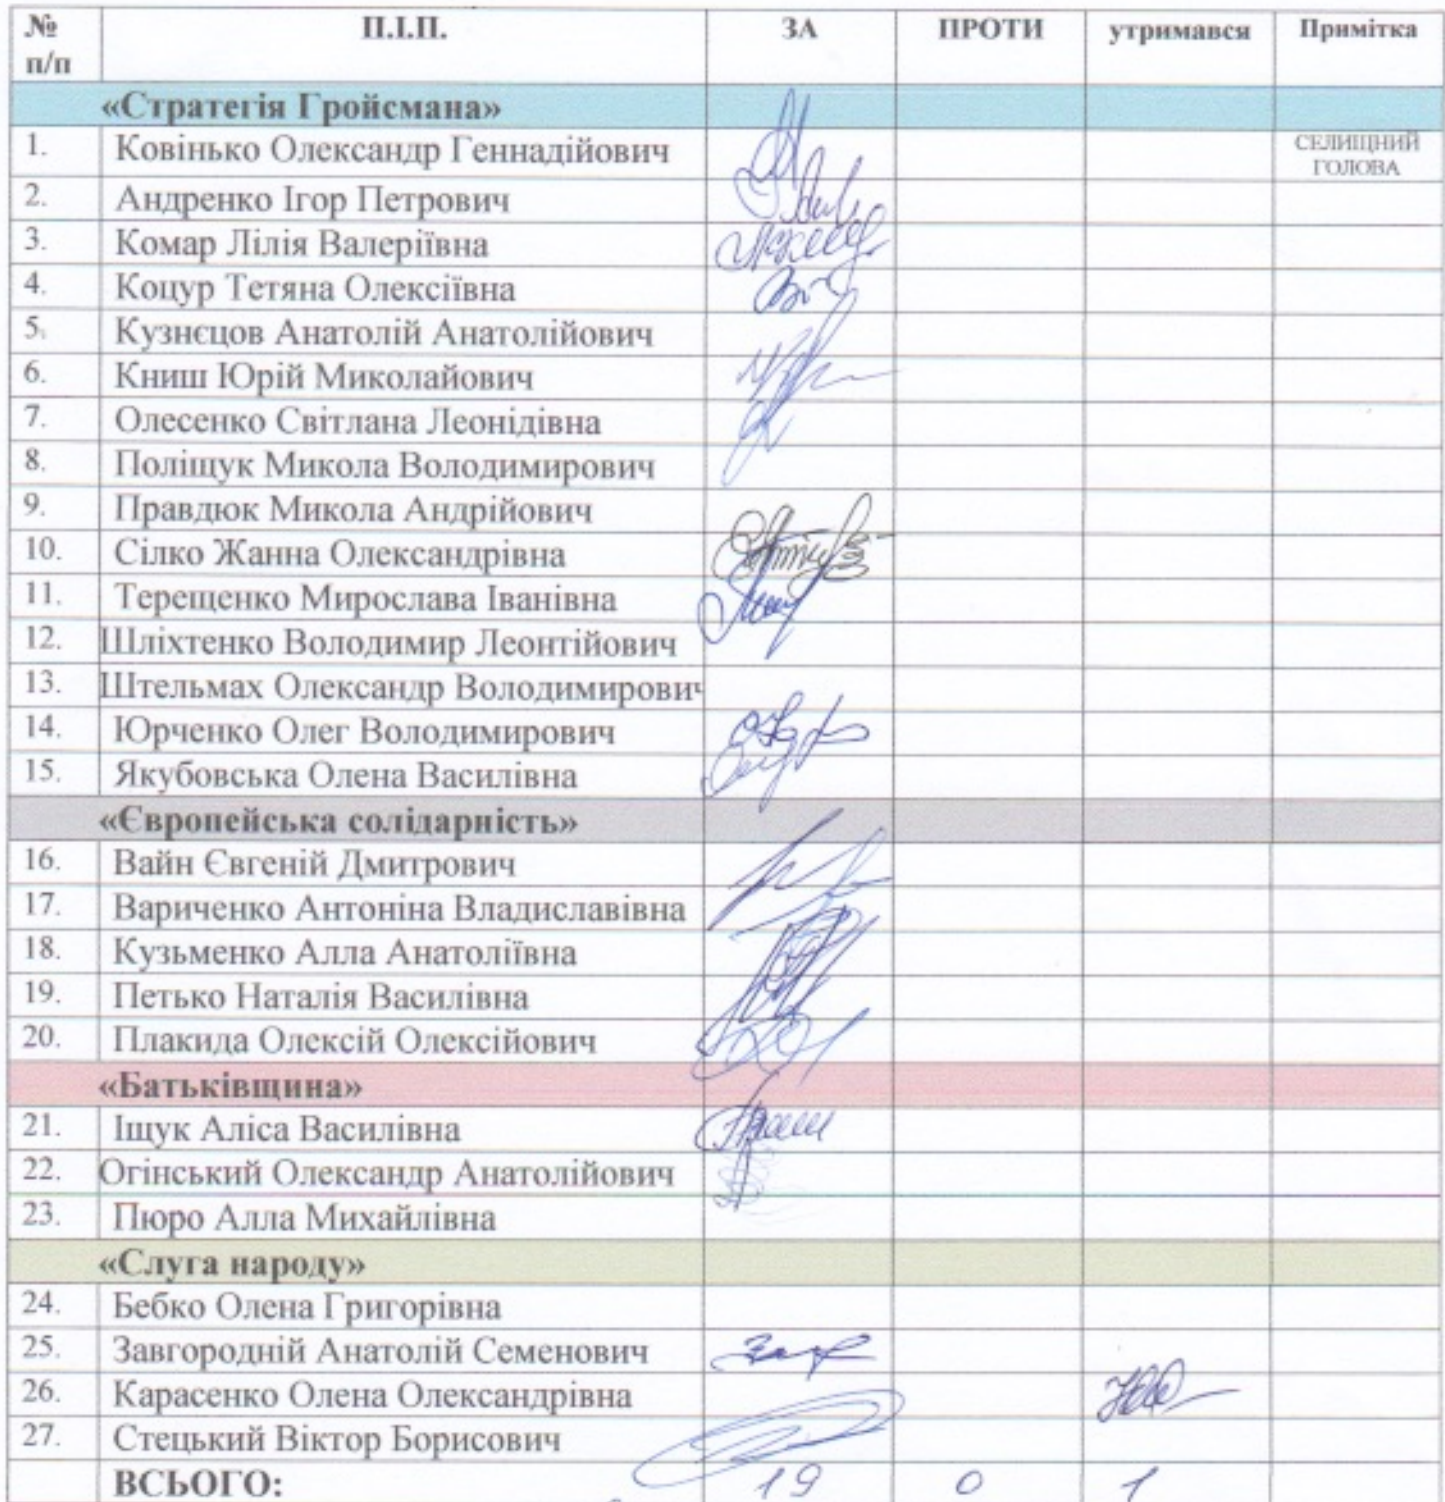 № П.І.П. ЗА ПРОТИ утримався Примітка
п/п
«Стратегія Гройсмана»
1. Ковінько Олександр Геннадійович СЕЛИЩНИЙ
ГОЛОВА
2. Андренко Ігор Петрович
3. Комар Лілія Валеріївна
4. Коцур Тетяна Олексіївна
5. Кузнєцов Анатолій Анатолійович
6. Книш Юрій Миколайович
7. Олесенко Світлана Леонідівна
8. Поліщук Микола Володимирович
9. Правдюк Микола Андрійович
10. Сілко Жанна Олександрівна
11. Терещенко Мирослава Іванівна
12. Шліхтенко Володимир Леонтійович
13. Штельмах Олександр Володимирович
14. Юрченко Олег Володимирович
15. Якубовська Олена Василівна
«Європейська солідарність»
16. Вайн Євгеній Дмитрович
17. Вариченко Антоніна Владиславівна
18. Кузьменко Алла Анатоліївна
19. Петько Наталія Василівна
20. Плакида Олексій Олексійович
«Батьківщина»
21. Іщук Аліса Василівна
22. Огінський Олександр Анатолійович
23. Пюро Алла Михайлівна
«Слуга народу»
24. Бебко Олена Григорівна
25. Завгородній Анатолій Семенович
26. Карасенко Олена Олександрівна
27. Стецький Віктор Борисович
ВСЬОГО: 19 0 1